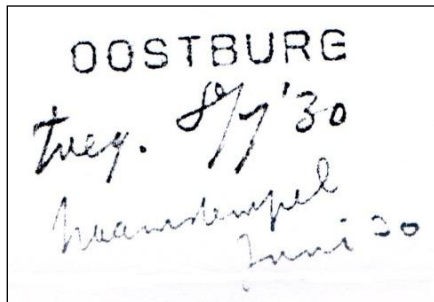 OOSTBURG
toeg. 8/7 '30
naamstempel
Juni 30